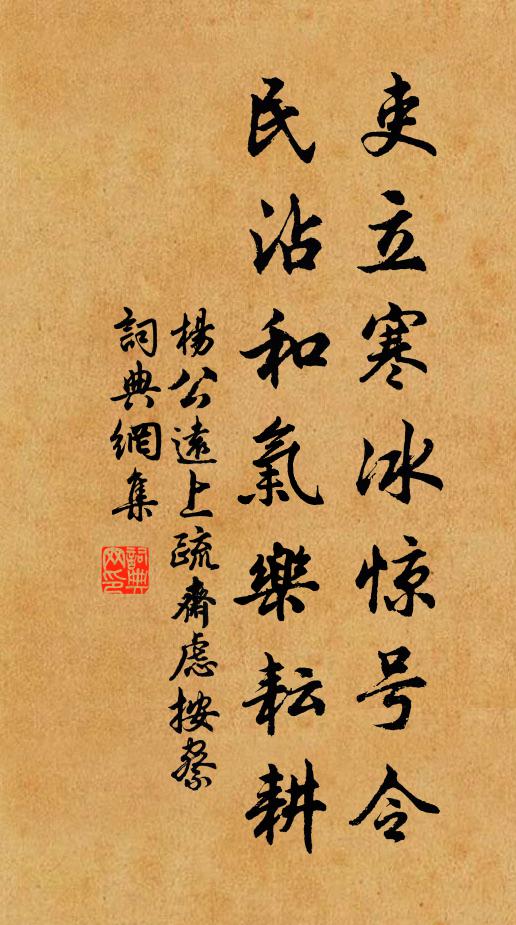 吏立寒冰惊号令
民沾和氣樂耘耕
楊公遠上疏齋慮按察
詞典網集
詞典網印